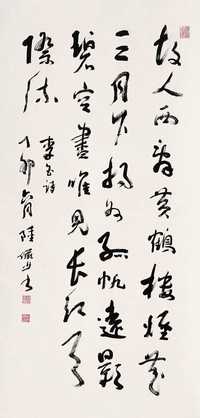 故人西辭黄鶴樓煙花
三月下揚州孤帆遠影
碧空盡唯見長江天
際流
李白詩
丁卯 月陸儼少書